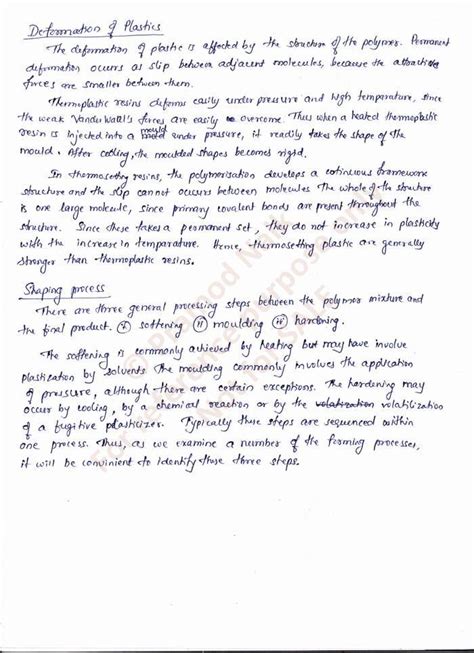 Deformation of Plastics
The deformation of plastic is affected by the structure of the polymer. Permanent
deformation occurs as slip between adjacent molecules, because the attracting
forces are smaller between them.
Thermoplastic resins deforms easily under pressure and high temparature, since
the weak Vander Wall's forces are easily overcome. Thus when a heated thermoplastic
resin is injected into a mould under pressure, it readily takes the shape of the
mould. After cooling, the moulded shapes becomes rigid.
In thermosetting resins, the polymerisation develops a continuous framework
structure and the slip cannot occurs between molecules The whole of the structure
is one large molecule, since primary covalent bonds are present throughout the
structure. Since these takes a permanent set, they do not increase in plasticity
with the increase in temparature. Hence, thermosetting plastic are generally
stronger than thermoplastic resins.
Shaping process
There are three general processing steps between the polymer mixture and
the final product. (i) softening (ii) moulding (iii) hardening.
The softening is commonly achieved by heating but may have involve
plastization by solvents The moulding commonly involves the application
of pressure, although there are certain exceptions. The hardening may
occur by cooling, by a chemical reaction or by the volatilization
of a fugitive plasticizer. Typically these steps are sequenced within
one process. Thus, as we examine a number of the forming processes,
it will be convinient to identify those three steps.